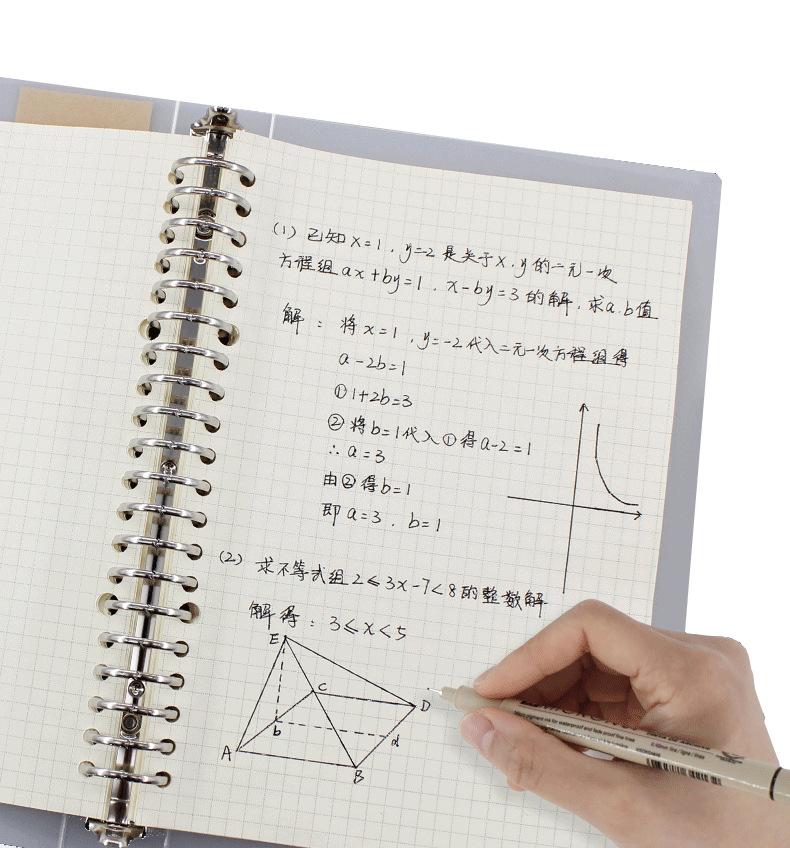 (1) 已知x=1，y=2是关于x.y的二元一次
方程组ax+by=1，x-by=3的解，求a.b值
解：将x=1，y=-2代入二元一次方程组得
a-2b=1
①1+2b=3
②将b=1代入①得a-2=1
∴a=3
由②得b=1
即a=3．b=1
(2) 求不等式组2≤3x-7<8的整数解
解得：3≤x<5
E
C
D
b
d
A
B